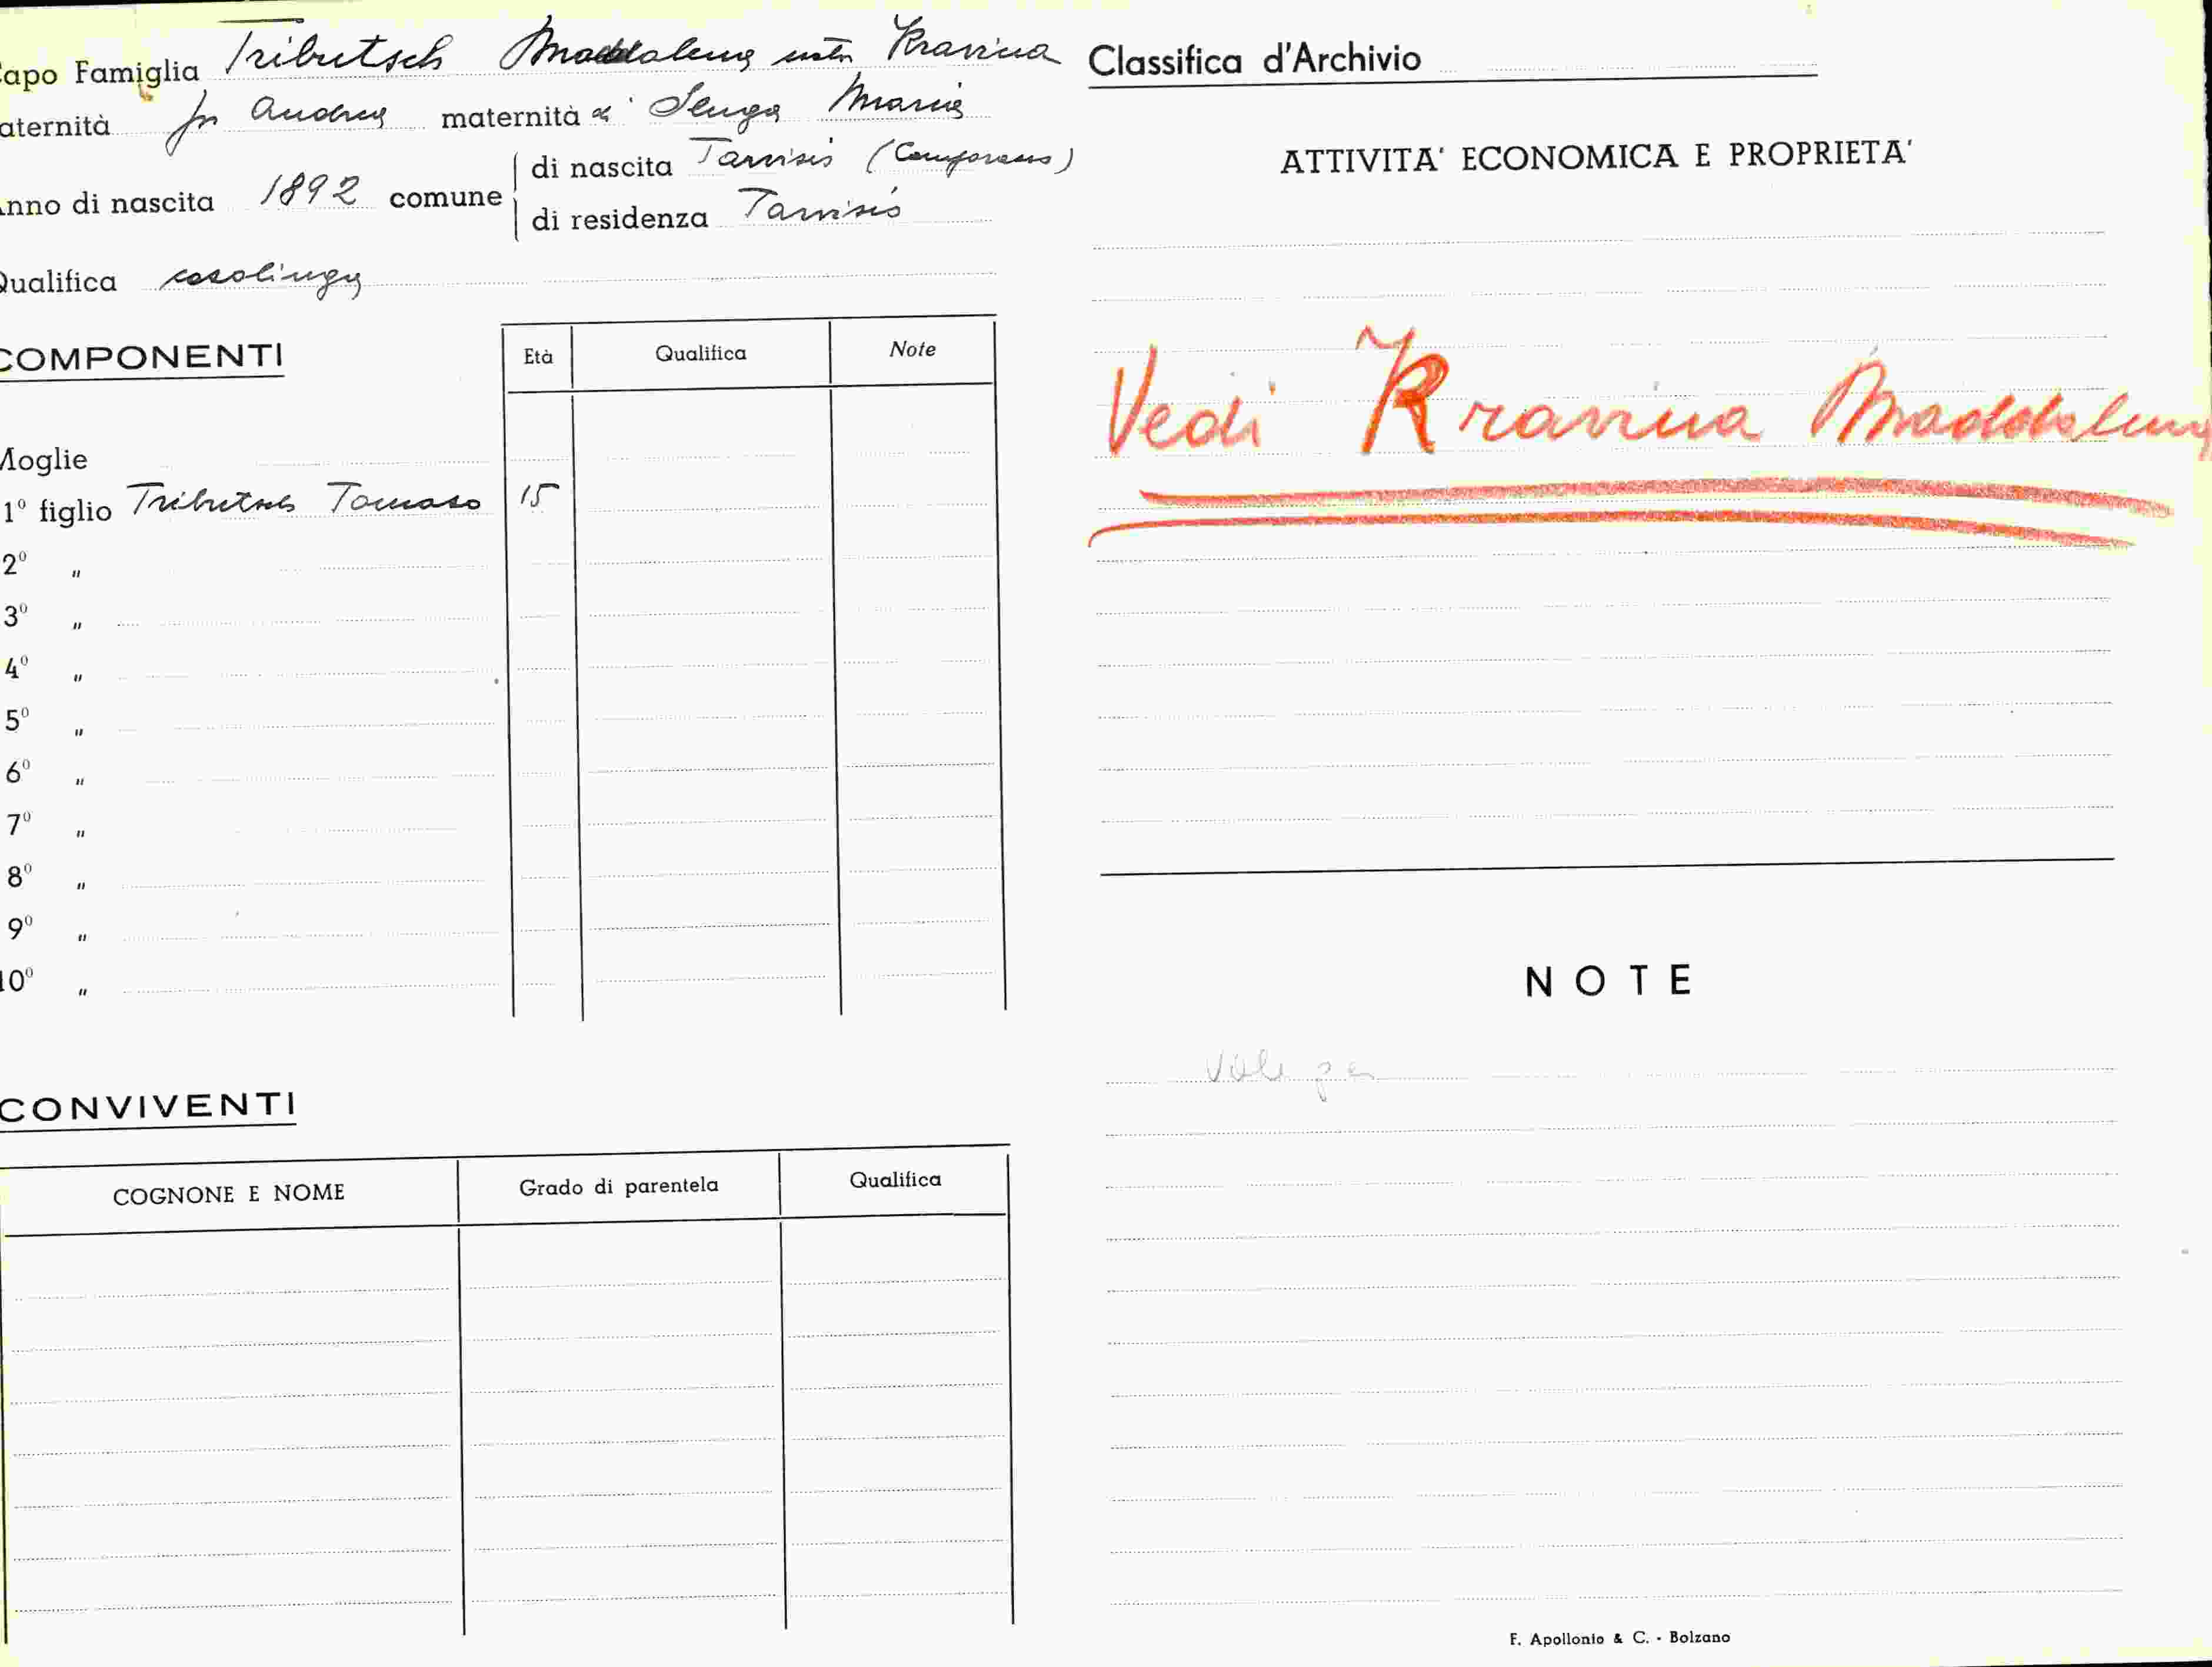 Capo Famiglia Tributsch Maddalena nata Kravina
aternità fu Andrea maternità di Senga Maria
Anno di nascita 1892 comune
di nascita Tarvisio (Camporosso)
di residenza Tarvisio
Qualifica casalinga
COMPONENTI
Età Qualifica Note
Moglie
1º figlio Tributsch Tomaso 15
2º „
3º „
4º „
5º „
6º „
7º „
8º „
9º „
10º „
CONVIVENTI
COGNONE E NOME Grado di parentela Qualifica
Classifica d'Archivio
ATTIVITA' ECONOMICA E PROPRIETA'
Vedi Kravina Maddalena
NOTE
Vale per
F. Apollonio & C. - Bolzano